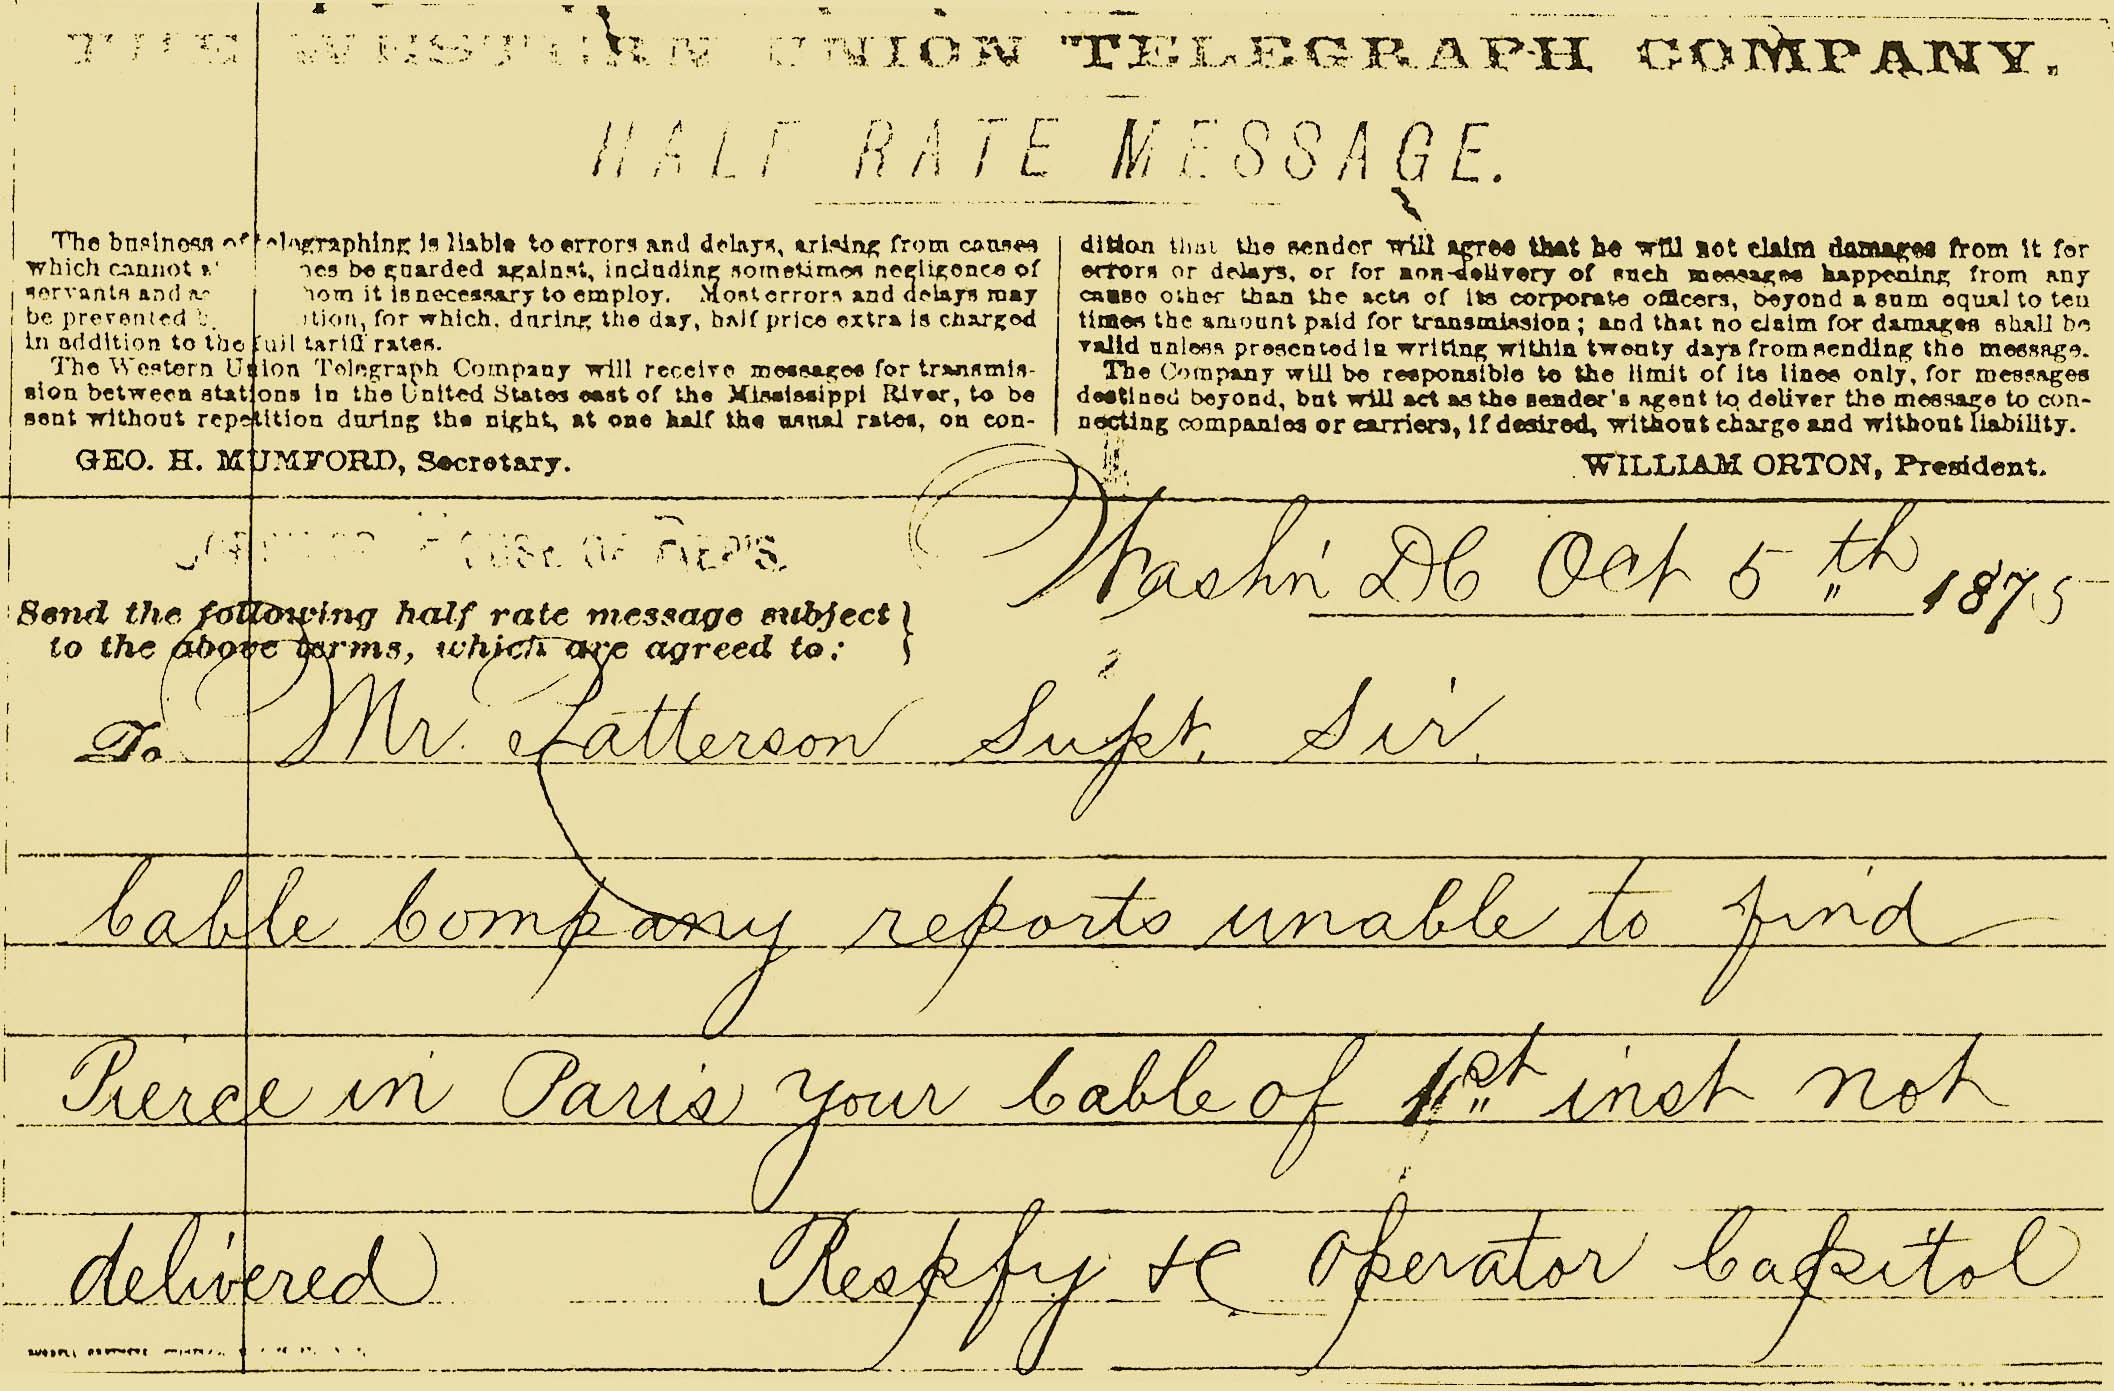 THE WESTERN UNION TELEGRAPH COMPANY.
HALF RATE MESSAGE.
The business of telegraphing is liable to errors and delays, arising from causes
which cannot be guarded against, including sometimes negligence of
servants and it is necessary to employ. Most errors and delays may
be prevented for which, during the day, half price extra is charged
in addition to the full tariff rates.
The Western Union Telegraph Company will receive messages for transmis-
sion between stations in the United States east of the Mississippi River, to be
sent without repetition during the night, at one half the usual rates, on con-
dition that the sender will agree that he will not claim damages from it for
errors or delays, or for non-delivery of such messages happening from any
cause other than the acts of its corporate officers, beyond a sum equal to ten
times the amount paid for transmission; and that no claim for damages shall be
valid unless presented in writing within twenty days from sending the message.
The Company will be responsible to the limit of its lines only, for messages
destined beyond, but will act as the sender's agent to deliver the message to con-
necting companies or carriers, if desired, without charge and without liability.
GEO. H. MUMFORD, Secretary.
WILLIAM ORTON, President.
HOUSE OF REP'S.
Wash'n DC Oct 5th 1875
Send the following half rate message subject
to the above terms, which are agreed to:
To Mr. Patterson Supt. Sir.
Cable Company reports unable to find
Pierce in Paris your Cable of 1st inst not
delivered Respfy &c Operator Capitol